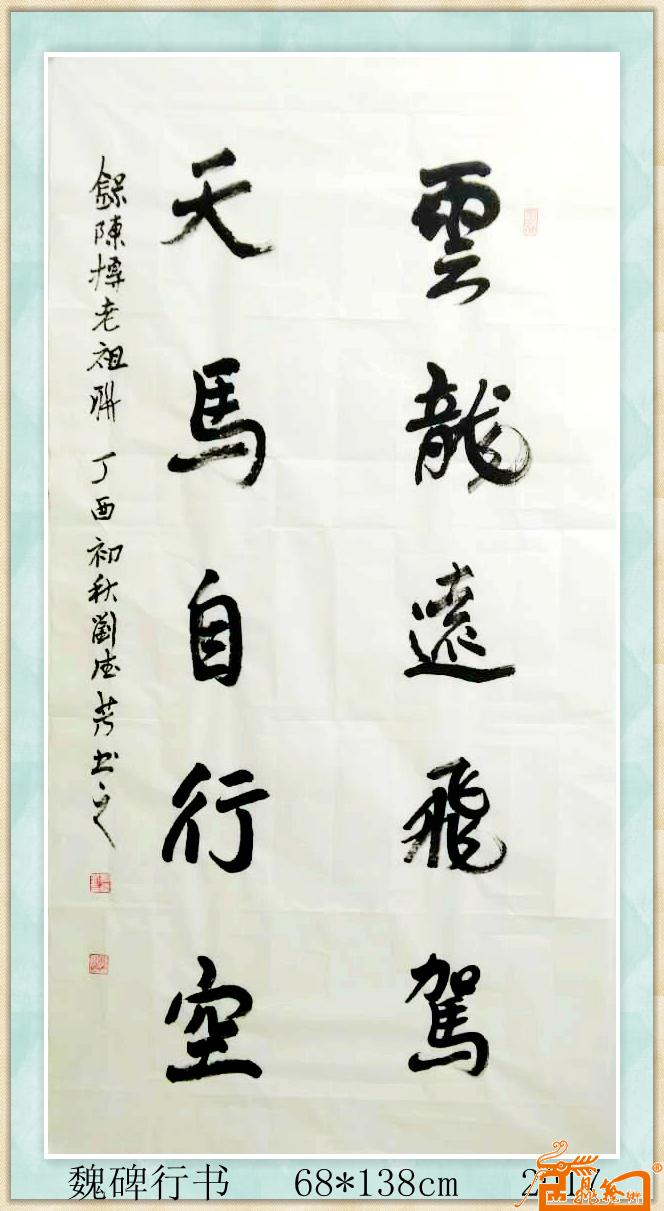 雲龍遠飛駕
天馬自行空
錄陳摶老祖聯 丁酉初秋劉德芳书之
魏碑行书 68*138cm 2017